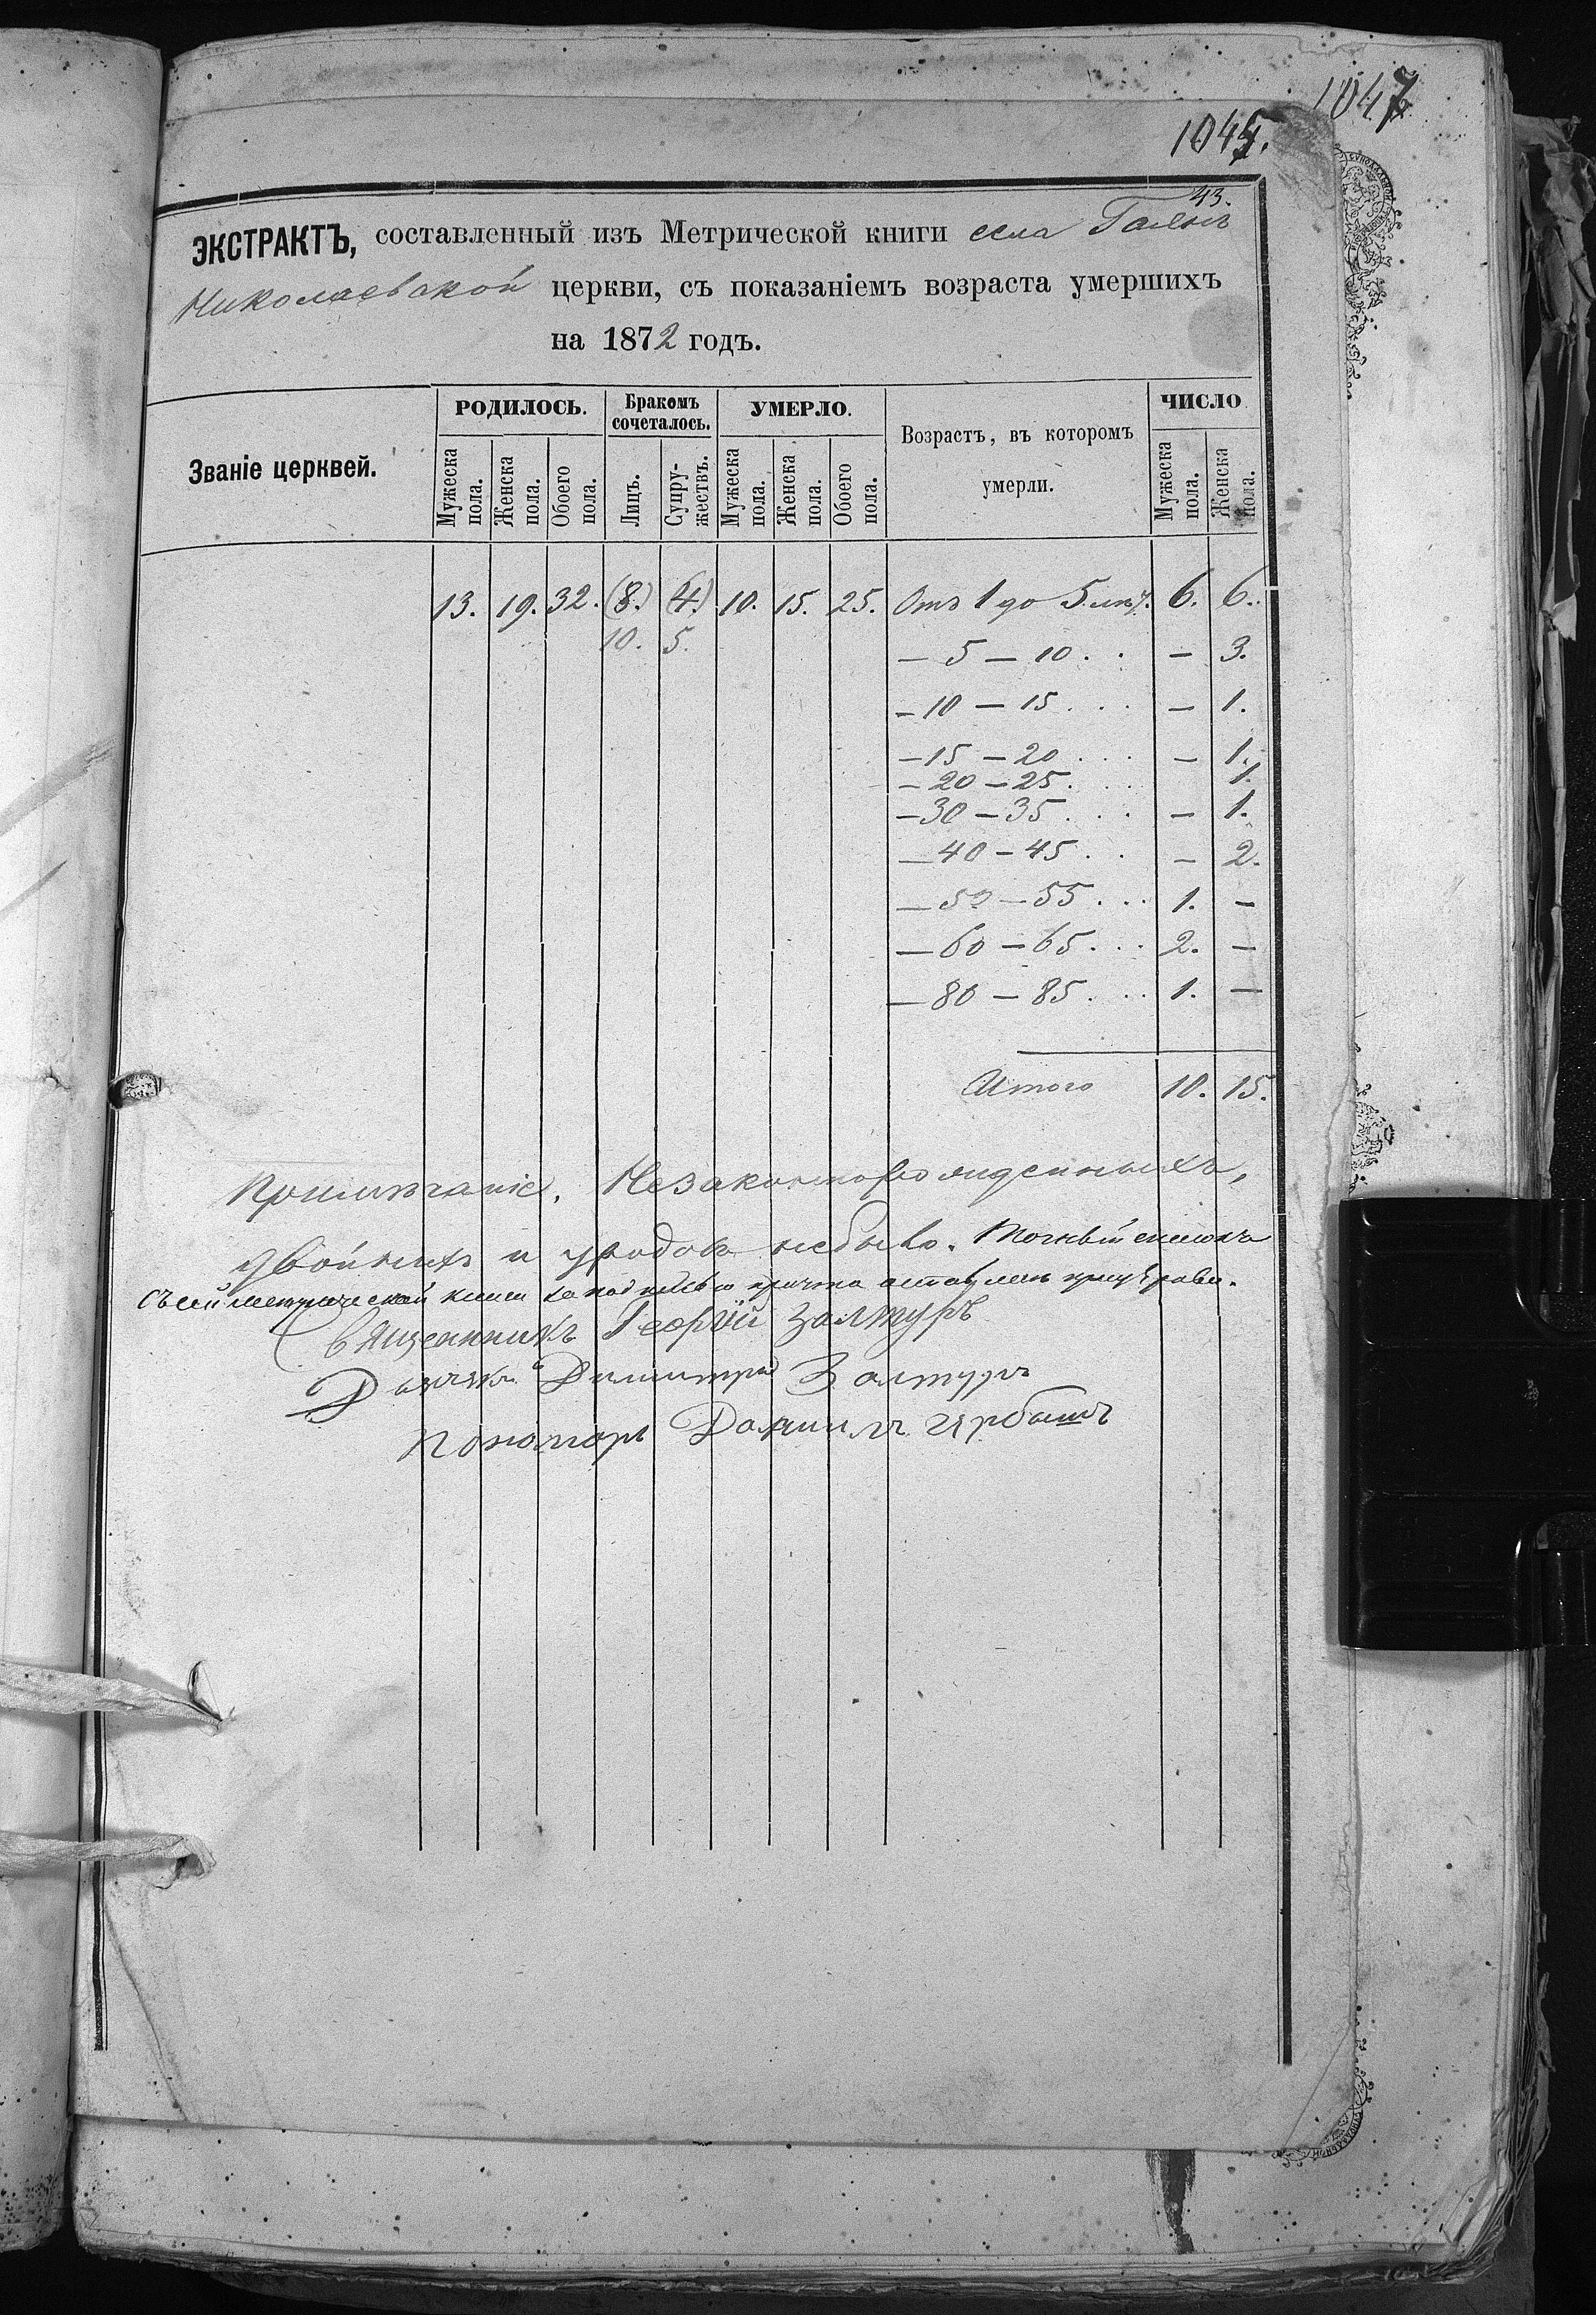 1047
1045.
43.
ЭКСТРАКТЪ, составленный изъ Метрической книги села
Николаевской церкви, съ показаніемъ возраста умершихъ
на 1872 годъ.
Званіе церквей.
РОДИЛОСЬ.
Мужеска пола.
Женска пола.
Обоего пола.
Бракомъ сочеталось.
Лицъ.
Супружествъ.
УМЕРЛО.
Мужеска пола.
Женска пола.
Обоего пола.
Возрастъ, въ которомъ
умерли.
ЧИСЛО
Мужеска пола.
Женска пола.
13. 19. 32. (8.) (4.) 10. 15. 25. Отъ 1 до 5 лѣт. 6. 6.
10. 5.
— 5 — 10 . . — 3.
— 10 — 15 . . . — 1.
— 15 — 20 . . . — 1.
— 20 — 25 . . . 1.
— 30 — 35 . . . — 1.
— 40 — 45 . . — 2.
— 50 — 55 . . . 1. —
— 60 — 65 . . . 2. —
— 80 — 85 . . . 1. —
Итого 10. 15.
Примѣчаніе. Незаконнорожденныхъ,
двойнихъ и уродовъ небыло. Точный списокъ
съ сей метрической книги за подписью причта оставленъ при церкви.
Священникъ Георгій Залтуръ
Дьячекъ Димитрій Залтуръ
Пономарь Даниилъ